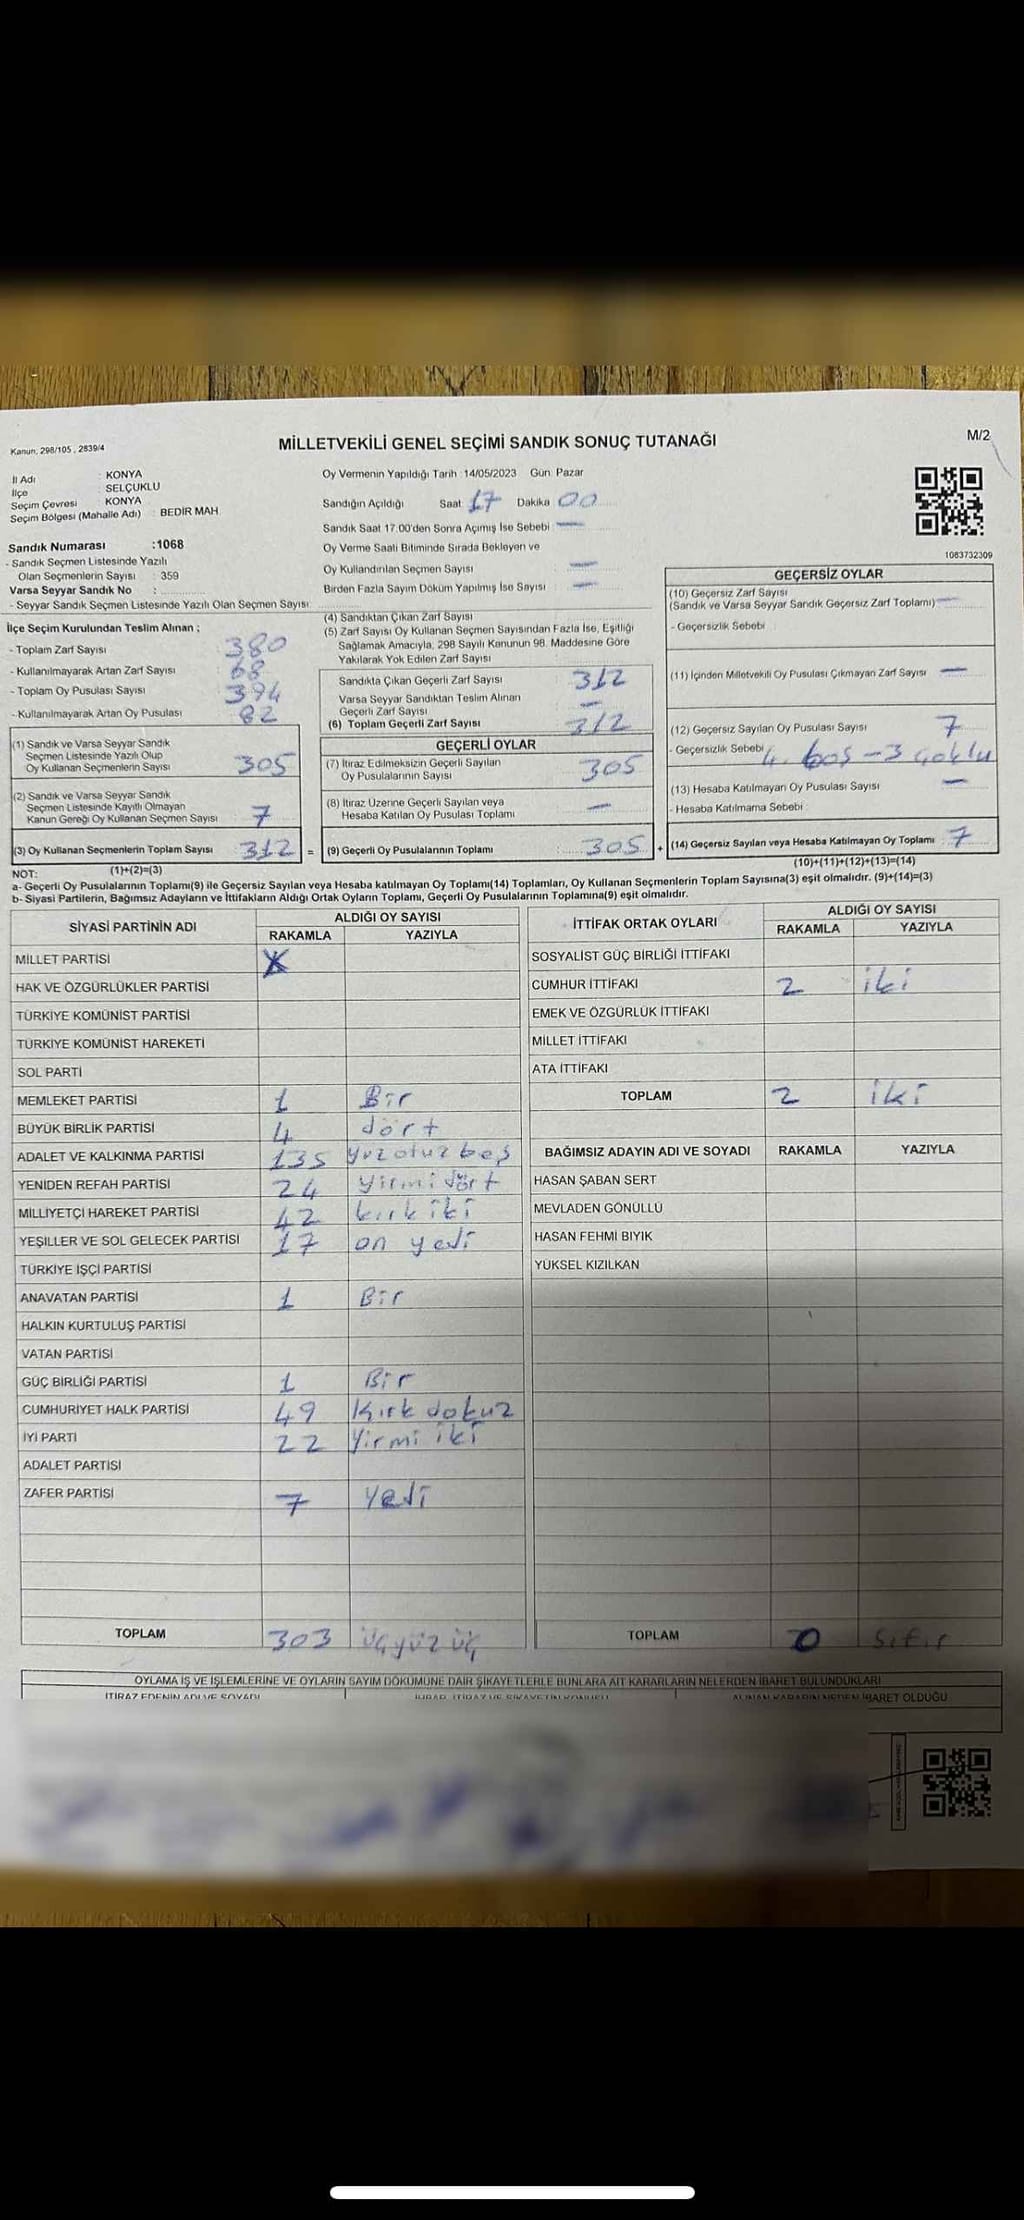 Kanun: 298/105 , 2839/4
MİLLETVEKİLİ GENEL SEÇİMİ SANDIK SONUÇ TUTANAĞI
M/2
İl Adı : KONYA
İlçe : SELÇUKLU
Seçim Çevresi : KONYA
Seçim Bölgesi (Mahalle Adı) : BEDİR MAH.
Oy Vermenin Yapıldığı Tarih :14/05/2023 Gün: Pazar
Sandığın Açıldığı Saat 17 Dakika 00
Sandık Saat 17.00'den Sonra Açımış İse Sebebi : —
Oy Verme Saati Bitiminde Sırada Bekleyen ve
Oy Kullandırılan Seçmen Sayısı : —
Birden Fazla Sayım Döküm Yapılmış İse Sayısı : —
1063732309
Sandık Numarası :1068
- Sandık Seçmen Listesinde Yazılı
Olan Seçmenlerin Sayısı : 359
Varsa Seyyar Sandık No :
- Seyyar Sandık Seçmen Listesinde Yazılı Olan Seçmen Sayısı:
İlçe Seçim Kurulundan Teslim Alınan ;
- Toplam Zarf Sayısı 380
- Kullanılmayarak Artan Zarf Sayısı 68
- Toplam Oy Pusulası Sayısı 394
- Kullanılmayarak Artan Oy Pusulası 82
(1) Sandık ve Varsa Seyyar Sandık
Seçmen Listesinde Yazılı Olup
Oy Kullanan Seçmenlerin Sayısı 305
(2) Sandık ve Varsa Seyyar Sandık
Seçmen Listesinde Kayıtlı Olmayan
Kanun Gereği Oy Kullanan Seçmen Sayısı 7
(3) Oy Kullanan Seçmenlerin Toplam Sayısı 312 =
(1)+(2)=(3)
(4) Sandıktan Çıkan Zarf Sayısı
(5) Zarf Sayısı Oy Kullanan Seçmen Sayısından Fazla İse, Eşitliği
Sağlamak Amacıyla, 298 Sayılı Kanunun 98. Maddesine Göre
Yakılarak Yok Edilen Zarf Sayısı
Sandıkta Çıkan Geçerli Zarf Sayısı 312
Varsa Seyyar Sandıktan Teslim Alınan
Geçerli Zarf Sayısı —
(6) Toplam Geçerli Zarf Sayısı 312
GEÇERLİ OYLAR
(7) İtiraz Edilmeksizin Geçerli Sayılan
Oy Pusulalarının Sayısı 305
(8) İtiraz Üzerine Geçerli Sayılan veya
Hesaba Katılan Oy Pusulası Toplamı —
(9) Geçerli Oy Pusulalarının Toplamı 305 +
GEÇERSİZ OYLAR
(10) Geçersiz Zarf Sayısı
(Sandık ve Varsa Seyyar Sandık Geçersiz Zarf Toplamı) —
- Geçersizlik Sebebi
(11) İçinden Milletvekili Oy Pusulası Çıkmayan Zarf Sayısı —
(12) Geçersiz Sayılan Oy Pusulası Sayısı 7
- Geçersizlik Sebebi 4. boş - 3 çoklu
(13) Hesaba Katılmayan Oy Pusulası Sayısı —
- Hesaba Katılmama Sebebi :
(14) Geçersiz Sayılan veya Hesaba Katılmayan Oy Toplamı 7
(10)+(11)+(12)+(13)=(14)
NOT:
a- Geçerli Oy Pusulalarının Toplamı(9) ile Geçersiz Sayılan veya Hesaba katılmayan Oy Toplamı(14) Toplamları, Oy Kullanan Seçmenlerin Toplam Sayısına(3) eşit olmalıdır. (9)+(14)=(3)
b- Siyasi Partilerin, Bağımsız Adayların ve İttifakların Aldığı Ortak Oyların Toplamı, Geçerli Oy Pusulalarının Toplamına(9) eşit olmalıdır.
SİYASİ PARTİNİN ADI ALDIĞI OY SAYISI
RAKAMLA YAZIYLA
MİLLET PARTİSİ
HAK VE ÖZGÜRLÜKLER PARTİSİ
TÜRKİYE KOMÜNİST PARTİSİ
TÜRKİYE KOMÜNİST HAREKETİ
SOL PARTİ
MEMLEKET PARTİSİ 1 Bir
BÜYÜK BİRLİK PARTİSİ 4 dört
ADALET VE KALKINMA PARTİSİ 135 yüzotuzbeş
YENİDEN REFAH PARTİSİ 24 yirmi dört
MİLLİYETÇİ HAREKET PARTİSİ 42 kırk iki
YEŞİLLER VE SOL GELECEK PARTİSİ 17 on yedi
TÜRKİYE İŞÇİ PARTİSİ
ANAVATAN PARTİSİ 1 Bir
HALKIN KURTULUŞ PARTİSİ
VATAN PARTİSİ
GÜÇ BİRLİĞİ PARTİSİ 1 Bir
CUMHURİYET HALK PARTİSİ 49 Kırk dokuz
İYİ PARTİ 22 Yirmi iki
ADALET PARTİSİ
ZAFER PARTİSİ 7 Yedi
TOPLAM 303 üçyüz üç
İTTİFAK ORTAK OYLARI ALDIĞI OY SAYISI
RAKAMLA YAZIYLA
SOSYALİST GÜÇ BİRLİĞİ İTTİFAKI
CUMHUR İTTİFAKI 2 iki
EMEK VE ÖZGÜRLÜK İTTİFAKI
MİLLET İTTİFAKI
ATA İTTİFAKI
TOPLAM 2 iki
BAĞIMSIZ ADAYIN ADI VE SOYADI RAKAMLA YAZIYLA
HASAN ŞABAN SERT
MEVLADEN GÖNÜLLÜ
HASAN FEHMİ BIYIK
YÜKSEL KIZILKAN
TOPLAM 0 Sıfır
OYLAMA İŞ VE İŞLEMLERİNE VE OYLARIN SAYIM DÖKÜMÜNE DAİR ŞİKAYETLERLE BUNLARA AİT KARARLARIN NELERDEN İBARET BULUNDUKLARI
İTİRAZ EDENİN ADI VE SOYADI